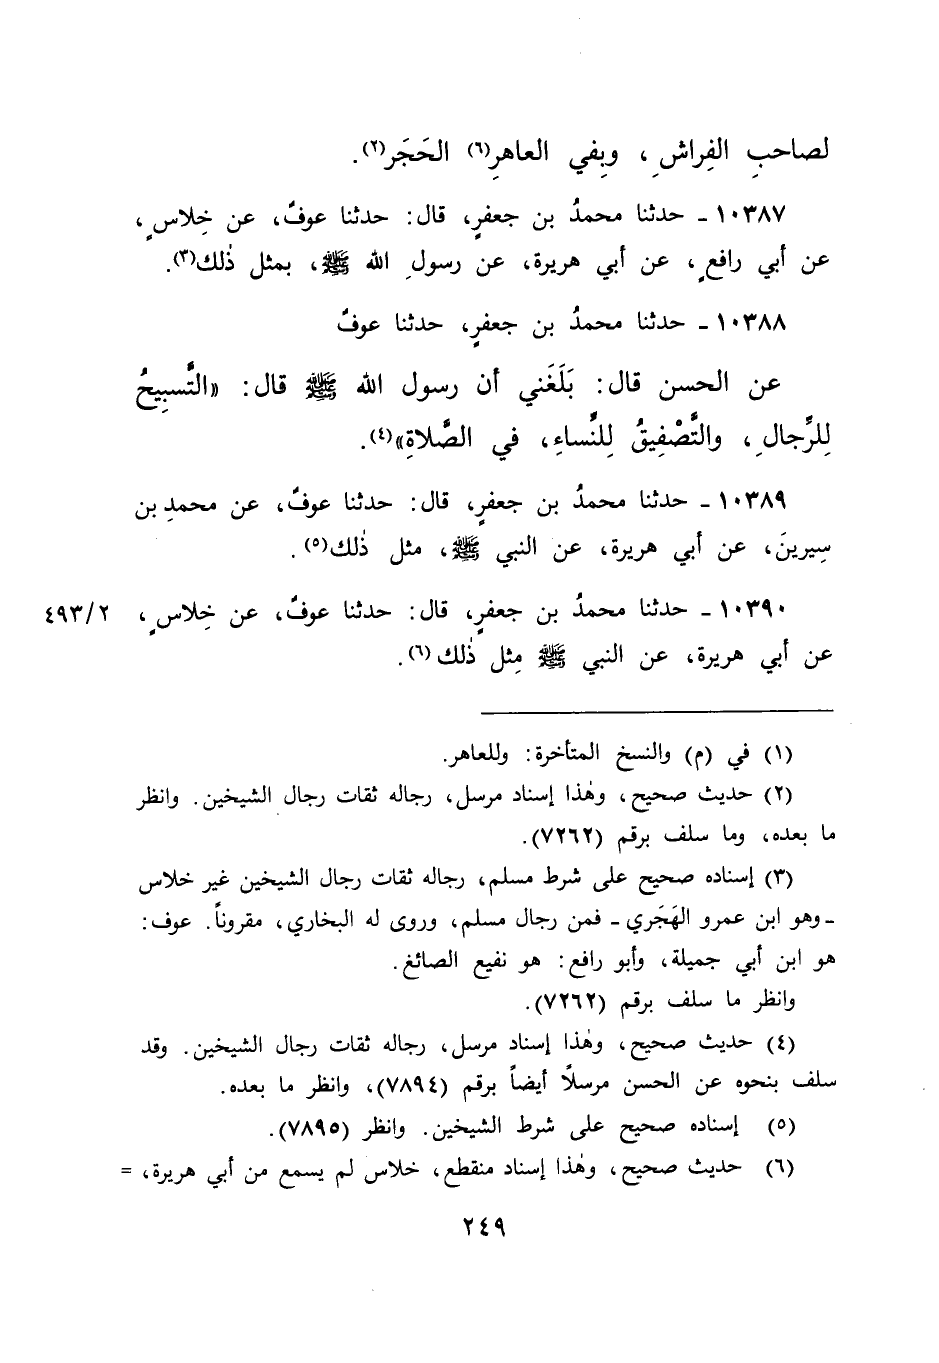 لصاحبِ الفِراشِ، وبِفي العاهرِ(٦) الحَجَر(٢).
١٠٣٨٧ ـ حدثنا محمدُ بن جعفرٍ، قال: حدثنا عوفٌ، عن خِلاسٍ،
عن أبي رافعٍ، عن أبي هريرة، عن رسولِ الله ﷺ، بمثل ذٰلك(٣).
١٠٣٨٨ ـ حدثنا محمدُ بن جعفرٍ، حدثنا عوفٌ
عن الحسن قال: بَلَغَني أن رسول الله ﷺ قال: «التَّسبِيحُ
لِلرِّجالِ، والتَّصْفِيقُ لِلنِّساءِ، في الصَّلاةِ»(٤).
١٠٣٨٩ ـ حدثنا محمدُ بن جعفرٍ، قال: حدثنا عوفٌ، عن محمدِ بن
سِيرينَ، عن أبي هريرة، عن النبي ﷺ، مثل ذٰلك(٥).
١٠٣٩٠ ـ حدثنا محمدُ بن جعفرٍ، قال: حدثنا عوفٌ، عن خِلاسٍ، ٤٩٣/٢
عن أبي هريرة، عن النبي ﷺ مِثل ذٰلك(٦).
(١) في (م) والنسخ المتأخرة: وللعاهر.
(٢) حديث صحيح، وهٰذا إسناد مرسل، رجاله ثقات رجال الشيخين. وانظر
ما بعده، وما سلف برقم (٧٢٦٢).
(٣) إسناده صحيح على شرط مسلم، رجاله ثقات رجال الشيخين غير خلاس
ـ وهو ابن عمرو الهَجَري ـ فمن رجال مسلم، وروى له البخاري، مقروناً. عوف:
هو ابن أبي جميلة، وأبو رافع: هو نفيع الصائغ.
وانظر ما سلف برقم (٧٢٦٢).
(٤) حديث صحيح، وهٰذا إسناد مرسل، رجاله ثقات رجال الشيخين. وقد
سلف بنحوه عن الحسن مرسلاً أيضاً برقم (٧٨٩٤)، وانظر ما بعده.
(٥) إسناده صحيح على شرط الشيخين. وانظر (٧٨٩٥).
(٦) حديث صحيح، وهٰذا إسناد منقطع، خلاس لم يسمع من أبي هريرة، =
٢٤٩